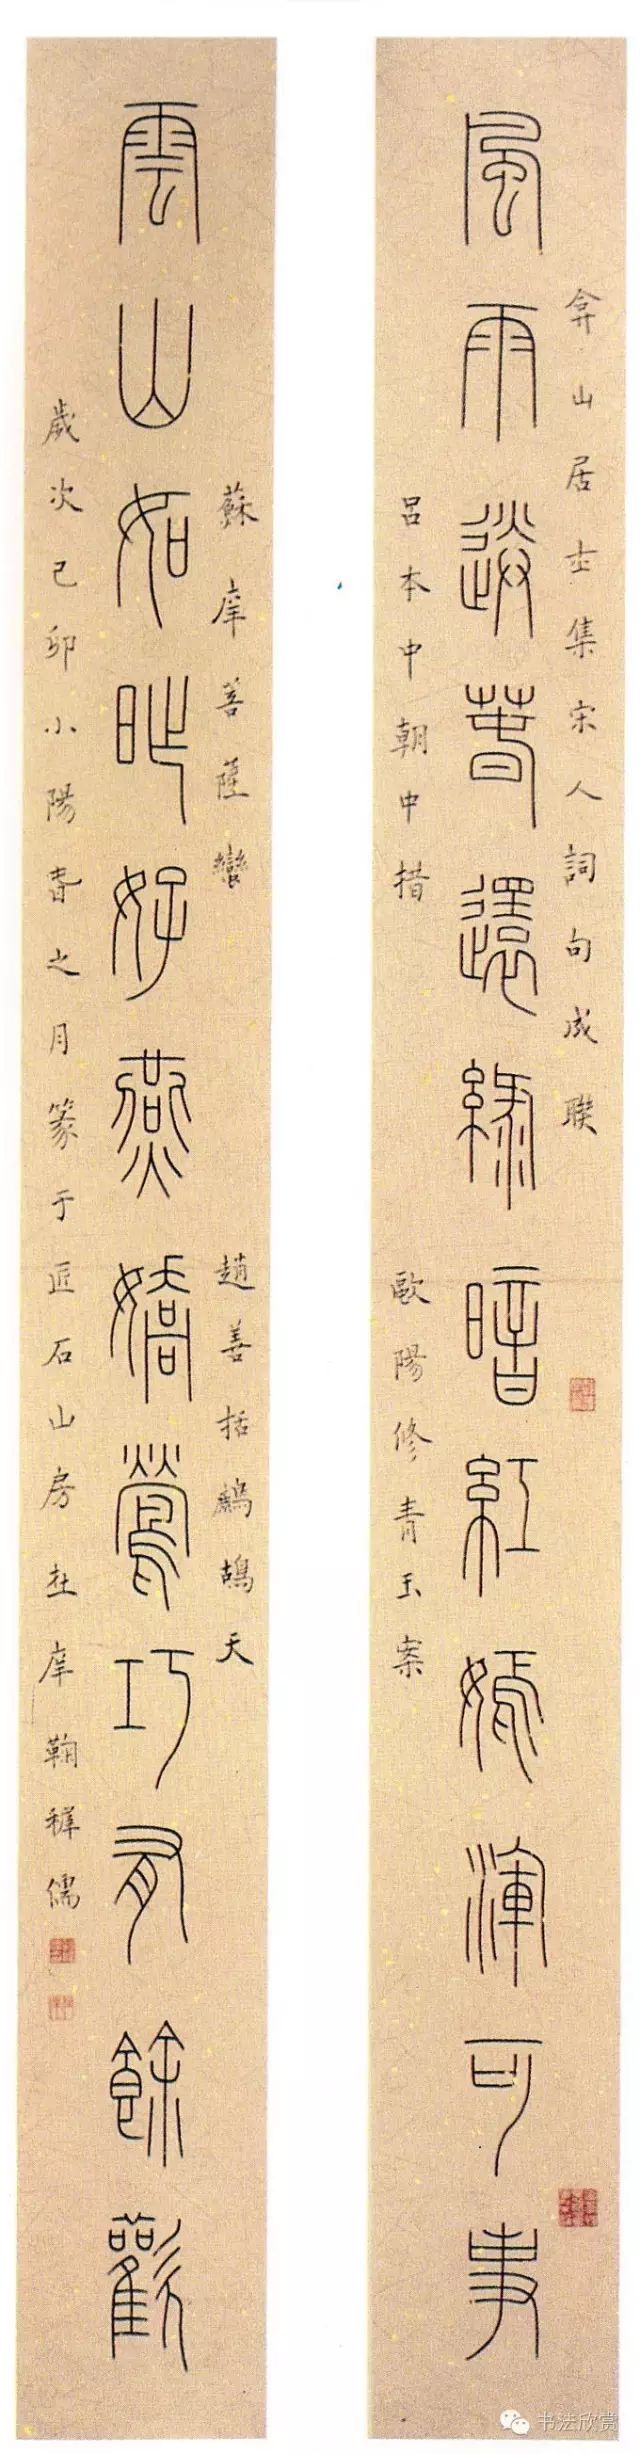 弇山居士集宋人詞句成聯
風雨送春還綠暗紅嫣渾可事
呂本中朝中措 歐陽修青玉案
蘇庠菩薩蠻 趙善括鷓鴣天
雲山如昨好燕嬌鶯巧有餘歡
歲次己卯小陽春之月篆于匠石山房庠鞠稺儒
书法欣赏